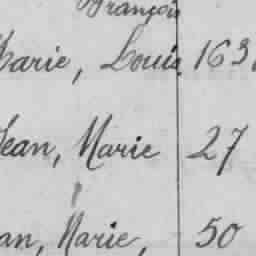 François
Marie, Louis 163
Jean, Marie 27
an, Marie, 50